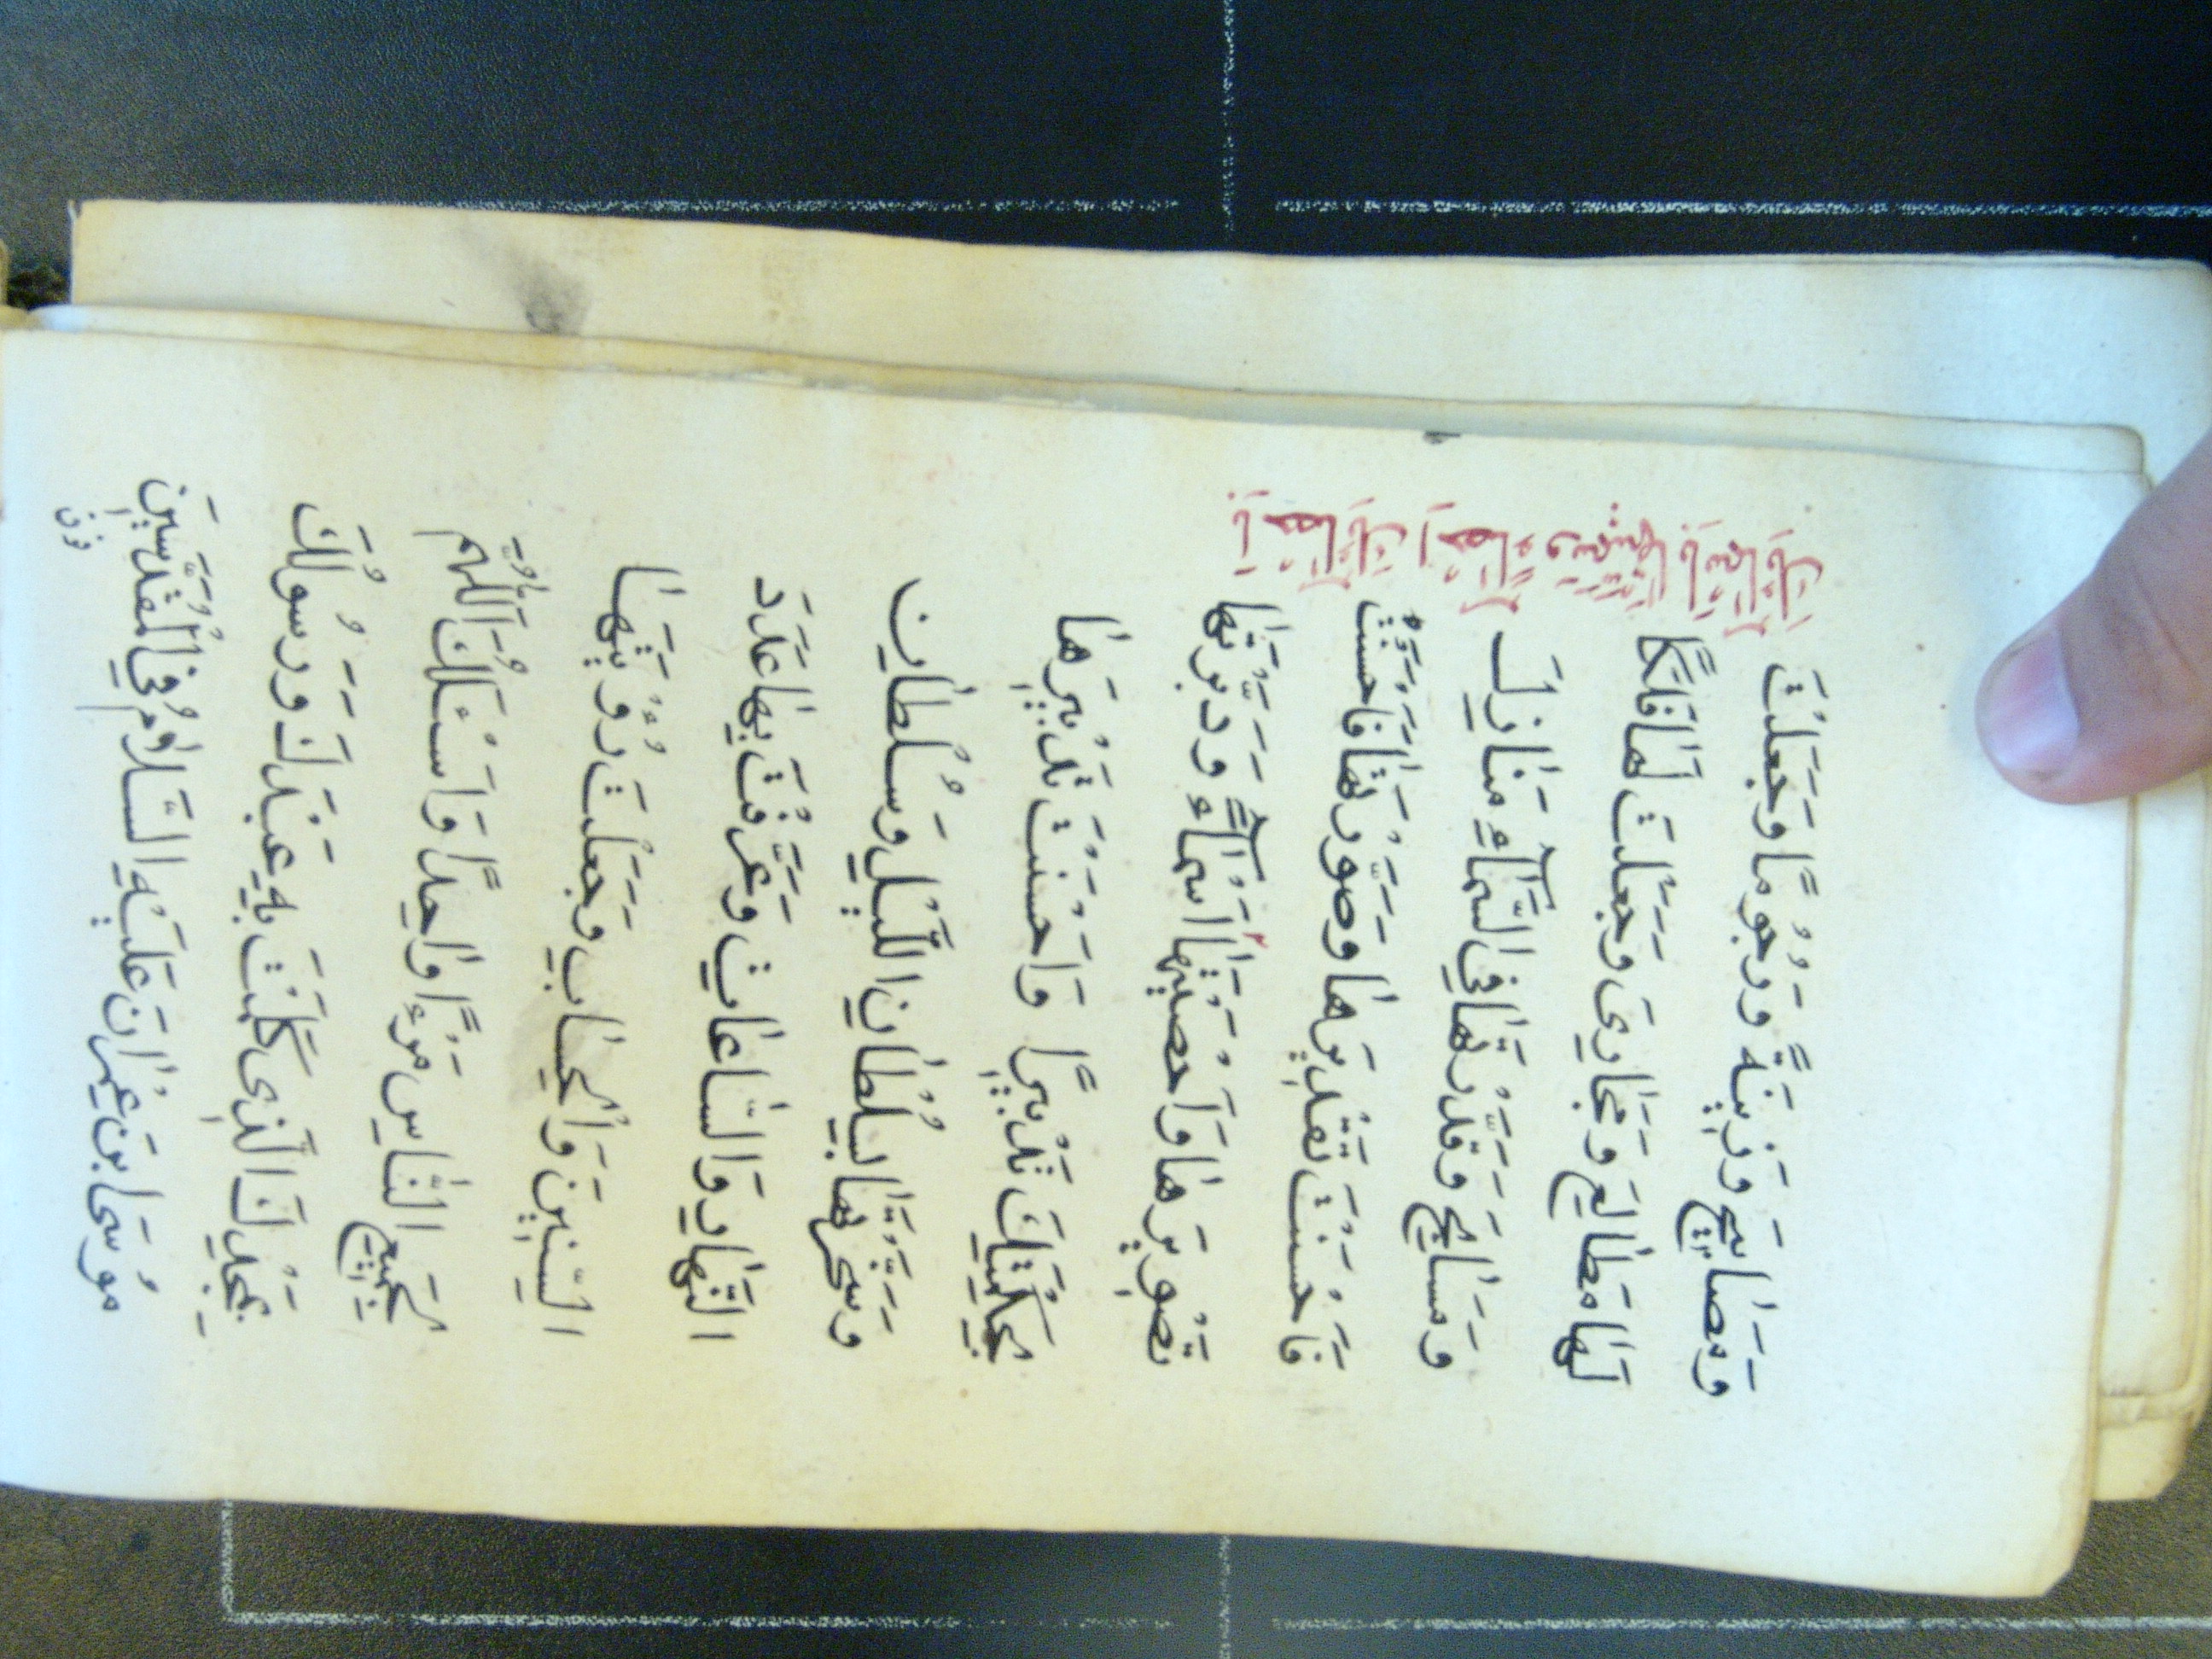 وَمَصَابِيحَ وَزِينَةً وَرُجُومًا وَجَعَلْتَ
لَهَا مَطَالِعَ وَمَجَارِىَ وَجَعَلْتَ لَهَا فَلَكًا
وَمَسَابِحَ وَقَدَّرْتَهَا فِي السَّمَآءِ مَنَازِلَ
فَاَحْسَنْتَ تَقْدِيرَهَا وَصَوَّرْتَهَا فَاَحْسَنْتَ
تَصْوِيرَهَا وَاَحْصَيْتَهَا اَسْمَآءً وَدَبَّرْتَهَا
بِحِكْمَتِكَ تَدْبِيرًا وَاَحْسَنْتَ تَدْبِيرَهَا
وَسَخَّرْتَهَا بِسُلْطَانِ اللَّيْلِ وَسُلْطَانِ
النَّهَارِ وَالسَّاعَاتِ وَعَرَّفْتَ بِهَا عَدَدَ
السِّنِينَ وَالْحِسَابِ وَجَعَلْتَ رُؤْيَتَهَا
لِجَمِيعِ النَّاسِ مَرْءًا وَاحِدًا وَاَسْئَلُكَ اَللّٰهُمَّ
بِمَجْدِكَ الَّذِى كَلَّمْتَ بِهِ عَبْدَكَ وَرَسُولَكَ
مُوسَى بْنَ عِمْرَانَ عَلَيْهِ السَّلَامُ فِي الْمُقَدَّسِينَ
فوق
بِاَسْمَآئِكَ اِحْصَآءً وَسَمَّيْتَهَا بِاَسْمَآئِكَ